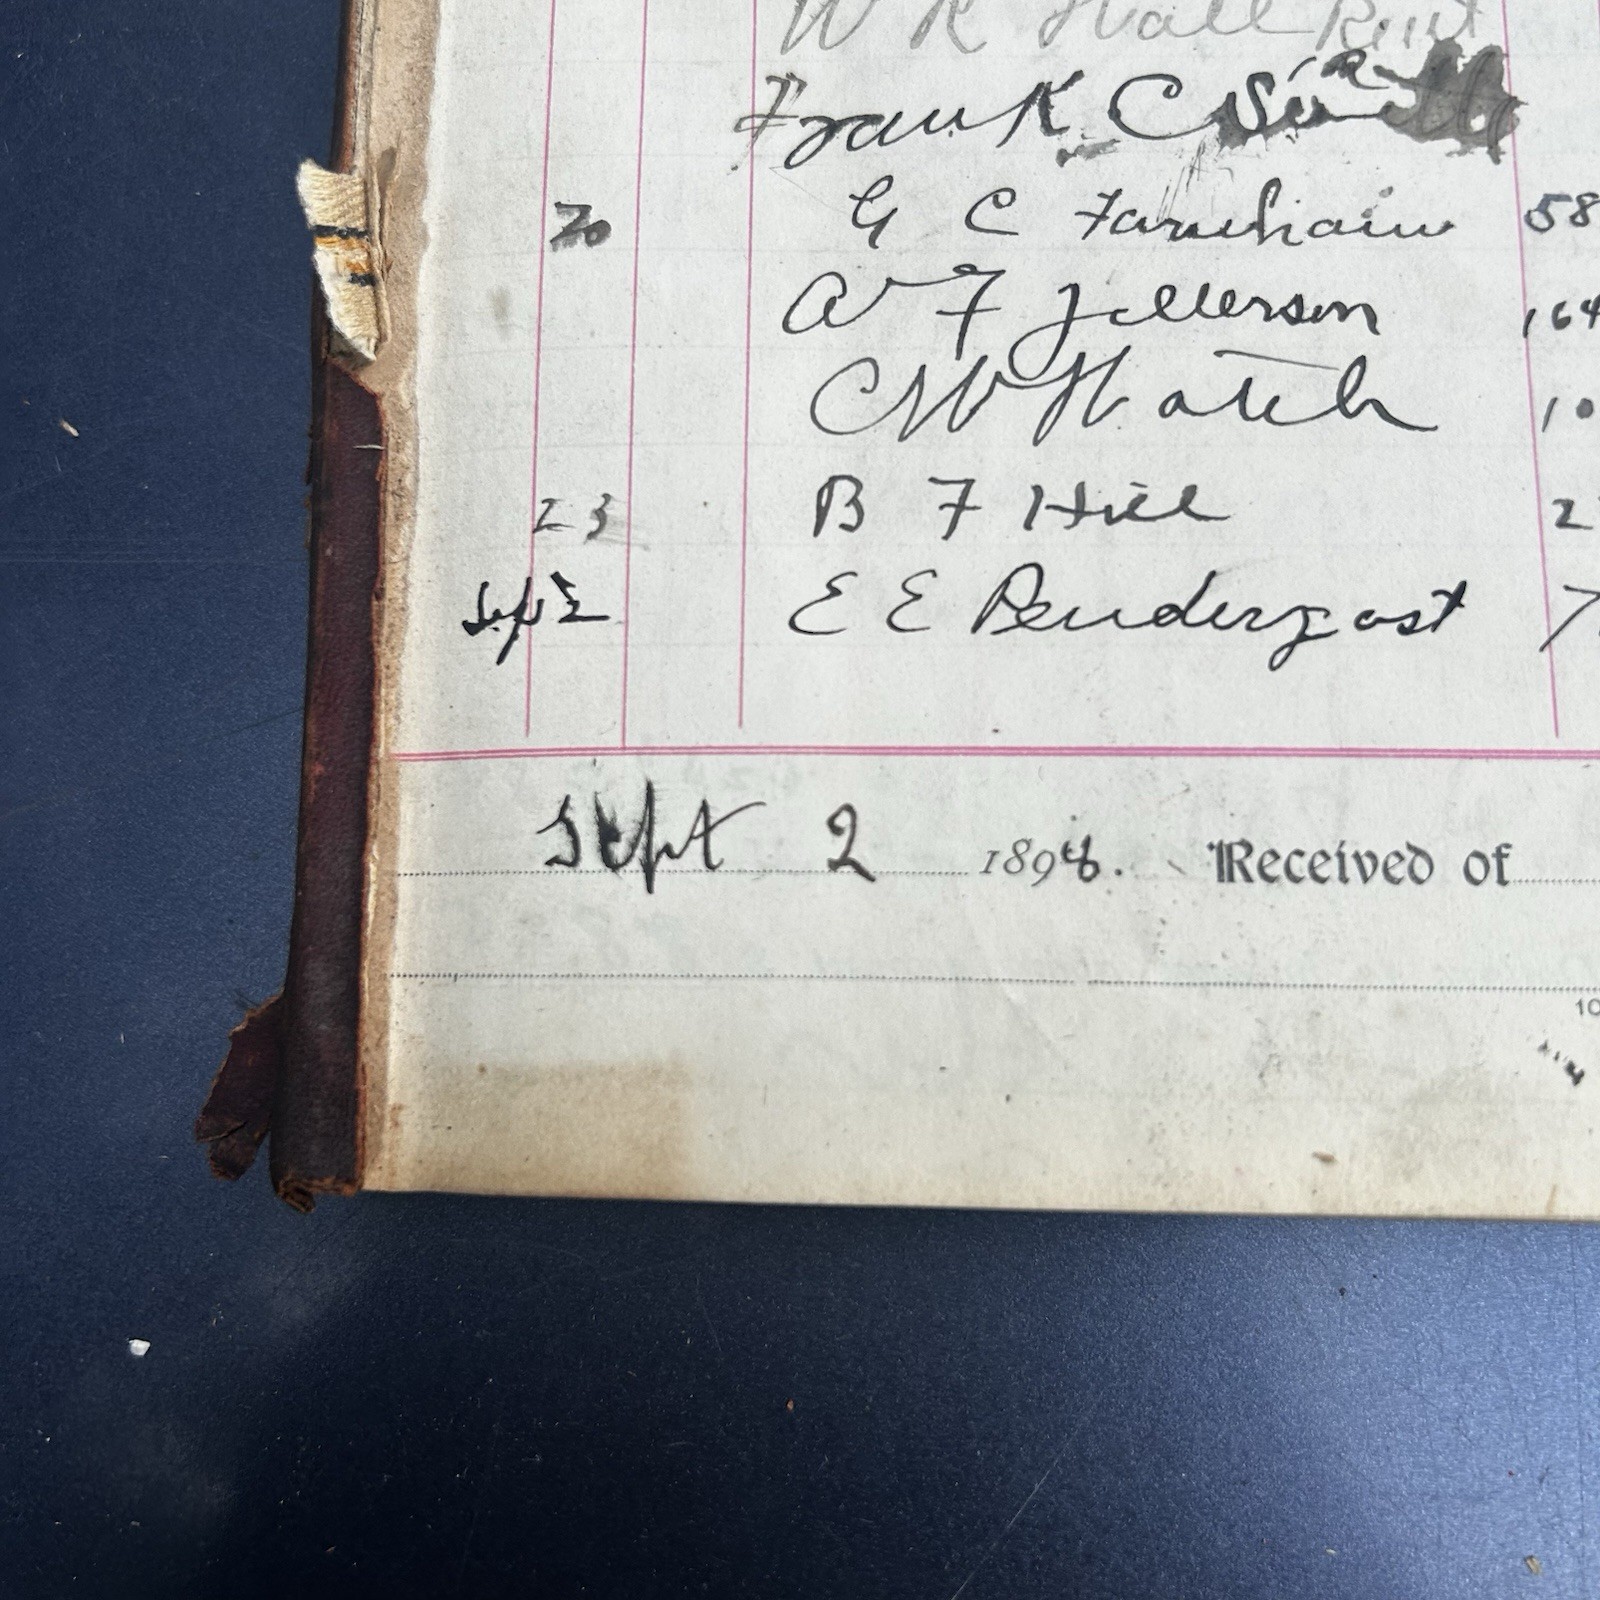 W R Hall
Frank C
20 G C Farnham 58
A F Jefferson 164
C W Hatch 10
23 B F Hill 2
Sept 2 E E Pendergast 7
Sept 2 1898. Received of
10